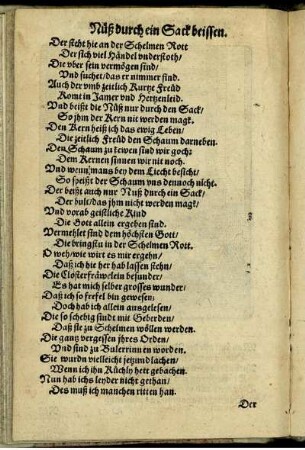 Nüß durch ein Sack beissen.
Der steht hie an der Schelmen Rott
Der sich viel Händel vnderstoth/
Die vber sein vermögen sind/
Vnd suchet/das er nimmer sind.
Auch der vmb zeitlich Kurtze Freüd
Komt in Jamer vnd Hertzenleid.
Vnd beißt die Nüß nur durch den Sack/
So jhm der Kern nit werden magk.
Den Kern heiß ich das ewig Leben/
Die zeitlich Freüd den Schaum darneben.
Den Schaum zu kewen sind wir goch:
Dem Kernen sinnen wir nit noch.
Vnd wenn'mans bey dem Liecht besicht/
So speißt der Schaum vns dennoch nicht.
Der beißt auch nur Nuß durch ein Sack/
Der bult/das jhm nicht werden magk/
Vnd vorab geistliche Kind
Die Gott allein ergeben sind.
Vermehlet sind dem höchsten Gott/
Die bringstu in der Schelmen Rott.
O weh/wie wirt es mir ergehn/
Daß ich hie her hab lassen stehn/
Die Closterfräwelein besunder/
Es hat mich selber grosses wunder/
Daß ich so frefel bin gewesen;
Doch hab ich allein ausgelesen/
Die so schebig sindt mit Geberden/
Daß sie zu Schelmen wöllen werden.
Die gantz vergessen jhres Orden/
Vnd sind zu Bulerinnen worden.
Sie wurdn vielleicht jetzund lachen/
Wenn ich ihn Küchly hett gebachen.
Nun hab ichs leyder nicht gethan/
Des muß ich manchen ritten han.
Der